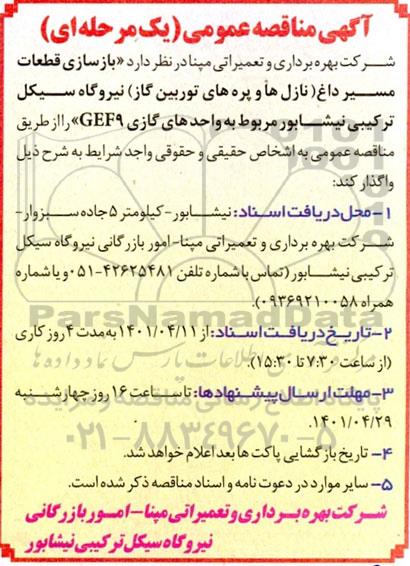 آگهی مناقصه عمومی (یک مرحله ای)
شرکت بهره برداری و تعمیراتی مپنا در نظر دارد «بازسازی قطعات
مسیر داغ (نازل ها و پره های توربین گاز) نیروگاه سیکل
ترکیبی نیشابور مربوط به واحدهای گازی GEF9» را از طریق
مناقصه عمومی به اشخاص حقیقی و حقوقی واجد شرایط به شرح ذیل
واگذار کند:
۱- محل دریافت اسناد: نیشابور- کیلومتر ۵ جاده سبزوار-
شرکت بهره برداری و تعمیراتی مپنا- امور بازرگانی نیروگاه سیکل
ترکیبی نیشابور (تماس با شماره تلفن ۴۲۶۲۵۴۸۱-۰۵۱ و یا شماره
همراه ۰۹۳۶۹۲۱۰۰۵۸).
۲- تاریخ دریافت اسناد: از ۱۴۰۱/۰۴/۱۱ به مدت ۴ روز کاری
(از ساعت ۷:۳۰ تا ۱۵:۳۰).
۳- مهلت ارسال پیشنهادها: تا ساعت ۱۶ روز چهارشنبه
۱۴۰۱/۰۴/۲۹.
۴- تاریخ بازگشایی پاکت ها بعدا اعلام خواهد شد.
۵- سایر موارد در دعوت نامه و اسناد مناقصه ذکر شده است.
شرکت بهره برداری و تعمیراتی مپنا- امور بازرگانی
نیروگاه سیکل ترکیبی نیشابور
ParsNamadData
۰۲۱-۸۸۳۴۹۶۷۰-۵